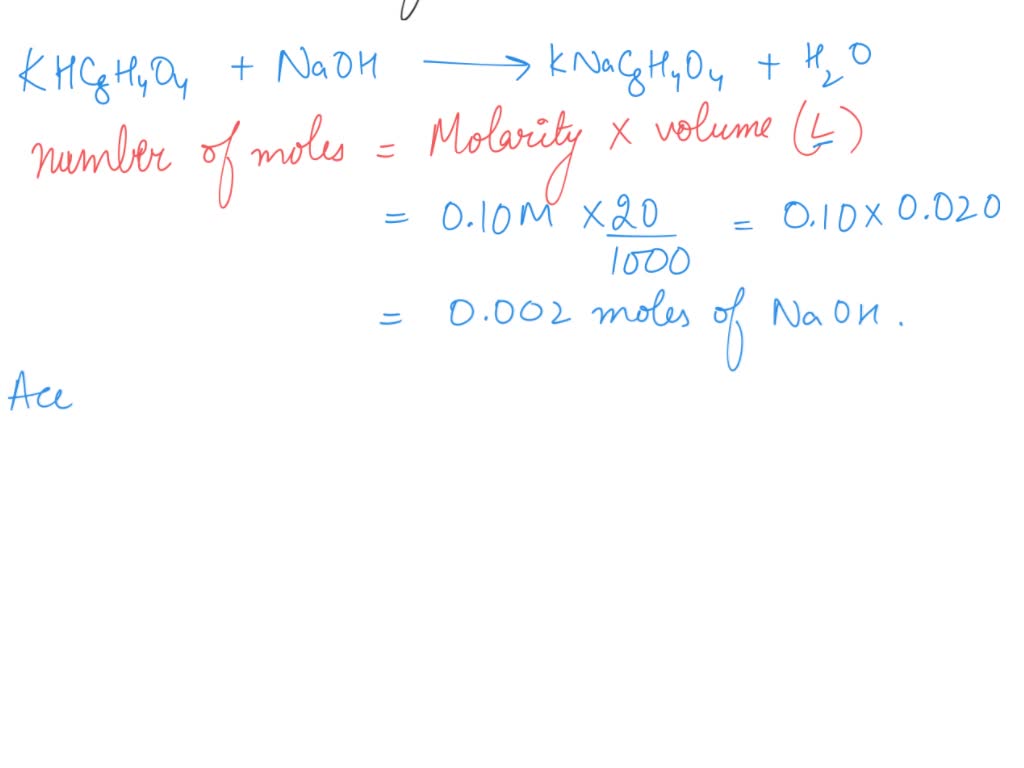 KHC₈H₄O₄ + NaOH ⟶ KNaC₈H₄O₄ + H₂O
number of moles = Molarity × volume (L)
= 0.10M × 20/1000 = 0.10 × 0.020
= 0.002 moles of NaOH.
Acc